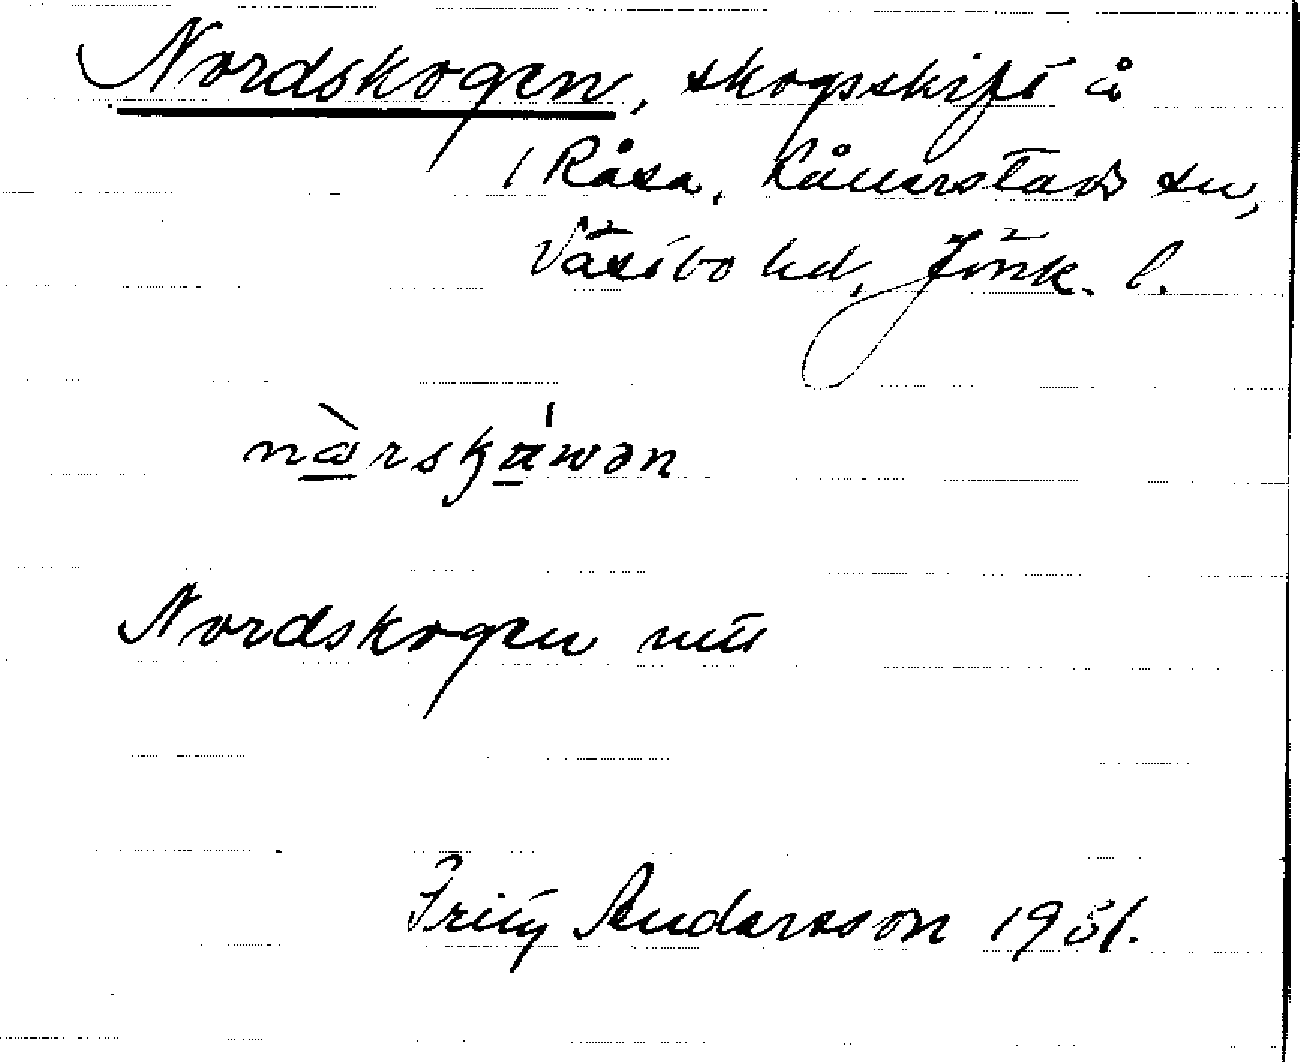 Nordskogen, skogsskift å
1 Råsa, Kållerstads sn,
Västbo hd, Jönk. l.
Nordskogen
Fritz Andersson 1951.